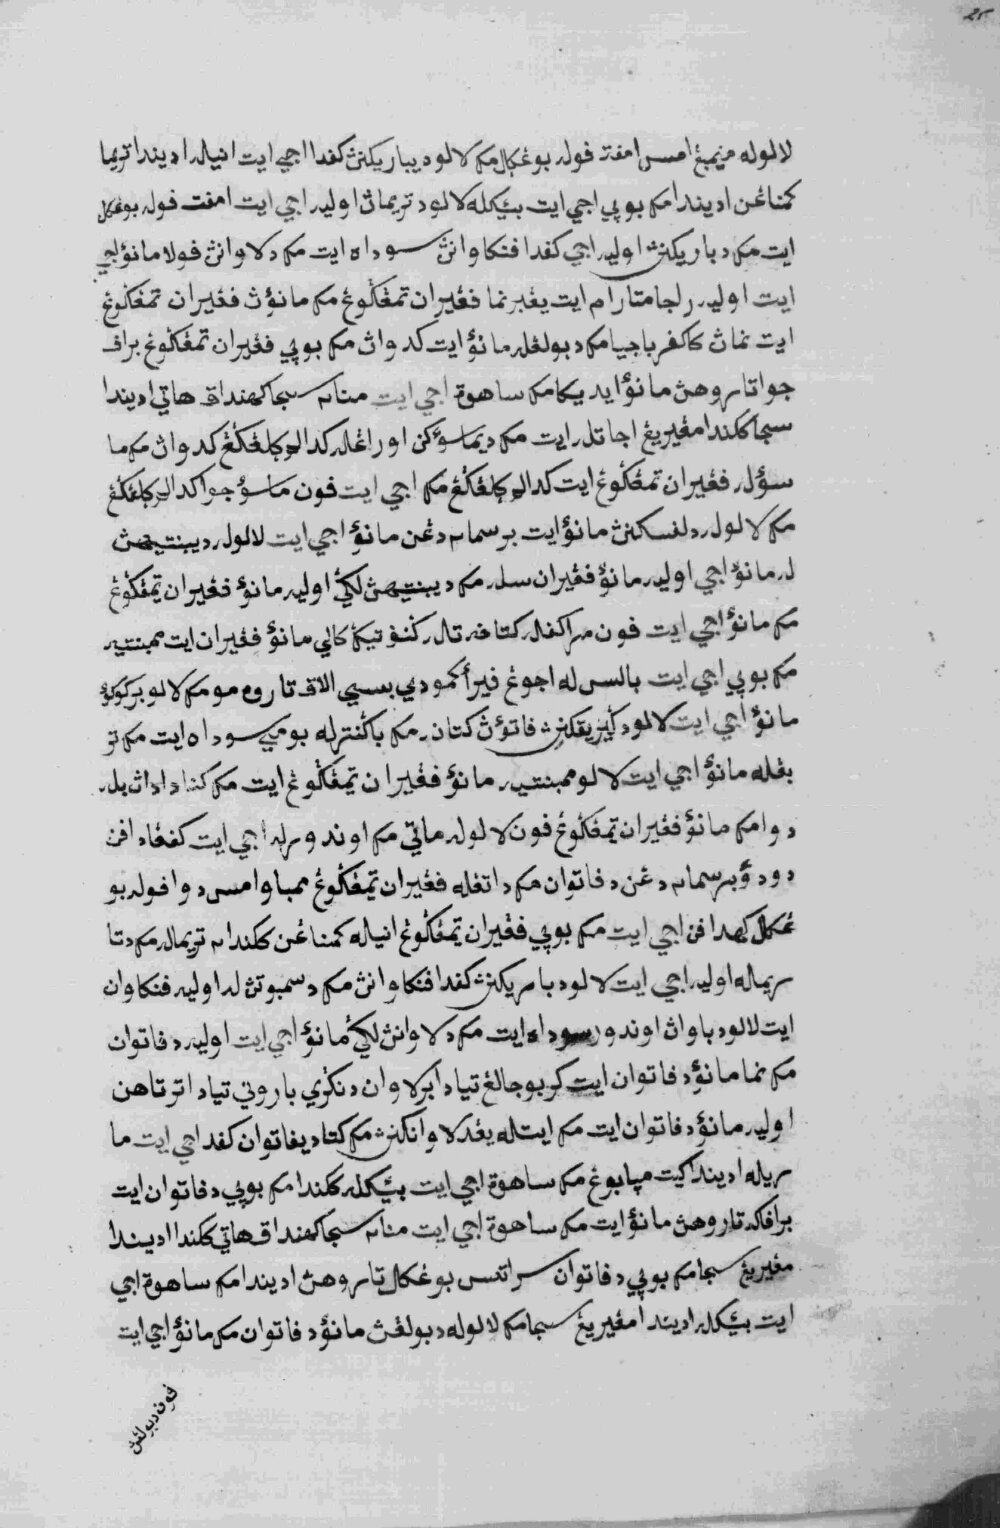 لالوله منيمبڠ امس امفت فوله بوڠكل مك لالو ديباريكنڽ كفدا اجي ايت انياله ادينداتريما
كمناڠن اديندا مك بوپي اجي ايت بئيكله لالو دتريماڽ اوليه اجي ايت امفت فوله بوڠكل
ايت مك دباريكنڽ اوليه اجي كفدا فنكاوانڽ سوداه ايت مك دلاوانڽ فولا مانوٴ اجي
ايت اوليه راجا متارام ايت يڠبرنما فڠيران تمڠكوڠ مك مانوٴڽ فڠيران تمڠكوڠ
ايت نماڽ كاكفر باجيا مك دبولڠله مانوٴ ايت كدواڽ مك بوپي فڠيران تمڠكوڠ براف
جوا تاروهن مانوٴ ايديكا مك ساهوة اجي ايت مناله سجا كهنداق هاتي اديندا
سجا ككندا مڠيريڠ اجا تله ايت مك ديماسوٴكن اورڠله كدالم كلڠكڠ كدواڽ مك ما
سوٴله فڠيران تمڠكوڠ ايت كدالم كلڠكڠ مك اجي ايت فون ماسوٴ جوا كدالم كلڠكڠ
مك لالوله دلفسكنڽ مانوٴ ايت برسمام دڠن مانوٴ اجي ايت لالوله ديبنتيهڽ
له مانوٴ اجي اوليه مانوٴ فڠيران سله مك ديبنتيهڽ لاكي اوليه مانوٴ فڠيران تمڠكوڠ
مك مانوٴ اجي ايت فون مراكفله كتانه تله كنف تيك كالي مانوٴ فڠيران ايت ممبنتيه
مك بوپي اجي ايت بالسله اجوڠ فيرأ كمودي بسي الاڤ تاروم مو مك لالو بركوكوٴ
مانوٴ اجي ايت لالو دكيريڤكنڽ فاتوٴڽ كتانه مك باكنترله بومي سوداه ايت مك تر
بڠله مانوٴ اجي ايت لالو ممبنتيه مانوٴ فڠيران تمڠكوڠ ايت مك كنا داداڽ بله
دوا مك مانوٴ فڠيران تمڠكوڠ فون لالوله ماتي مك اوندورله اجي ايت كفڠادافن
دودوٴ برسمام دڠن دفاتوان مك داتڠله فڠيران تمڠكوڠ ممباوا امس دوا فوله بو
ڠكل كهدافن اجي ايت مك بوپي فڠيران تمڠكوڠ انياله كمناڠن ككندام تريماله مك دتا
ريماله اوليه اجي ايت لالو دباريكنڽ كفدا فنكاوانڽ مك دسمبوتڽ له اوليه فنكاوان
ايت لالو دباواڽ اوندور سوداه ايت مك دلاوانڽ لاكي مانوٴ اجي ايت اوليه دفاتوان
مك نما مانوٴ دفاتوان ايت كربو جالڠ تياد ابرلاوان دنكري باروني تياد اترتاهن
اوليه مانوٴ دفاتوان ايت مك ايتله يڠدلاوانكنڽ مك كتا ديفاتوان كفد اجي ايت ما
ريله اديندا كيت مپابوڠ مك ساهوة اجي ايت بئيكله ككندا مك بوپي دفاتوان ايت
برافاكه تاروهن مانوٴ ايت مك ساهوة اجي ايت مناله سجا كهنداق هاتي ككندا اديندا
مڠيريڠ سجا مك بوپي دفاتوان سراتس بوڠكل تاروهن اديندا مك ساهوة اجي
ايت بئيكله اديندا مڠيريڠ سجا مك لالوله دبولڠڽ مانوٴ دفاتوان مك مانوٴ اجي ايت
فون دبولڠڽ